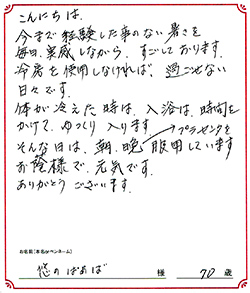 こんにちは.
今まで経験した事のない暑さを
毎日、実感しながら、すごしております.
冷房を使用しなければ、過ごせない
日々です.
体が冷えた時は、入浴は、時間を
かけて、ゆっくり入ります.
→プラセンタを
そんな日は、朝、晩、服用しています
お蔭様で、元気です.
ありがとうございます.
お名前(本名orペンネーム)
悠のばあば 様 70 歳